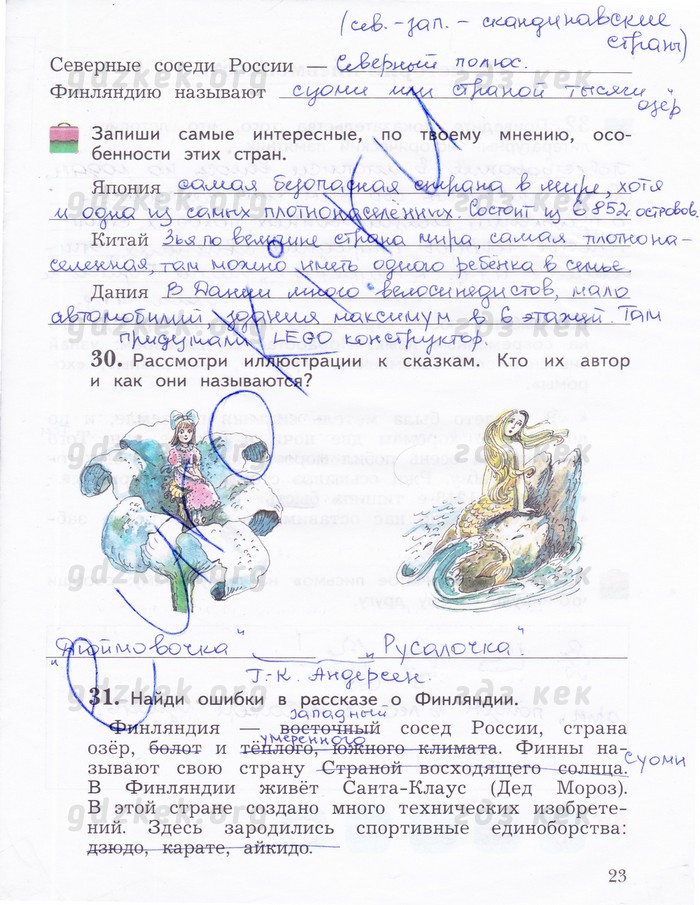 (сев.-зап. - скандинавские
страны)
Северные соседи России — Северный полюс.
Финляндию называют суоми или страной тысячи
озёр
Запиши самые интересные, по твоему мнению, осо-
бенности этих стран.
Япония самая безопасная страна в мире, хотя
и одна из самых плотнонаселенних. Состоит из 6852 островов.
Китай 3ья по величине страна мира, самая плотнона-
селенная, там можно иметь одного ребёнка в семье.
Дания В Дании много велосипедистов, мало
автомобилий, здания максимум в 6 этажей. Там
придумали LEGO конструктор.
30. Рассмотри иллюстрации к сказкам. Кто их автор
и как они называются?
"Дюймовочка" и "Русалочка"
Г.-К. Андерсен.
31. Найди ошибки в рассказе о Финляндии.
западный
Финляндия — восточный сосед России, страна
умеренного
озёр, болот и тёплого, южного климата. Финны на-
зывают свою страну Страной восходящего солнца. Суоми
В Финляндии живёт Санта-Клаус (Дед Мороз).
В этой стране создано много технических изобрете-
ний. Здесь зародились спортивные единоборства:
дзюдо, карате, айкидо.
23
gdzkek.org
гдз кек